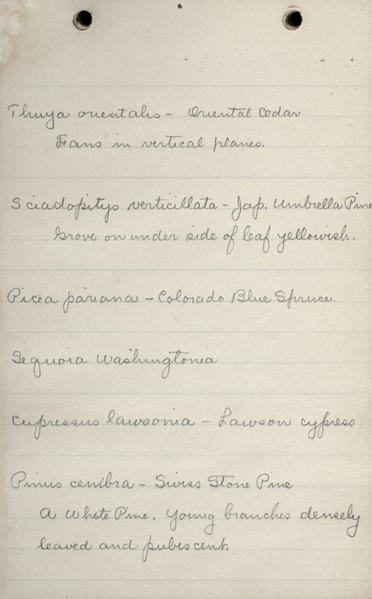 Thuya orientalis - Oriental Cedar
Fans in vertical planes.
Sciadopitys verticillata - Jap. Umbrella Pine
Grove on under side of leaf yellowish.
Picea pariana - Colorado Blue Spruce.
Sequoia Washingtonia
Cupressus lawsonia - Lawson cypress
Pinus cembra - Swiss Stone Pine
A White Pine. Young branches densely
leaved and pubescent.